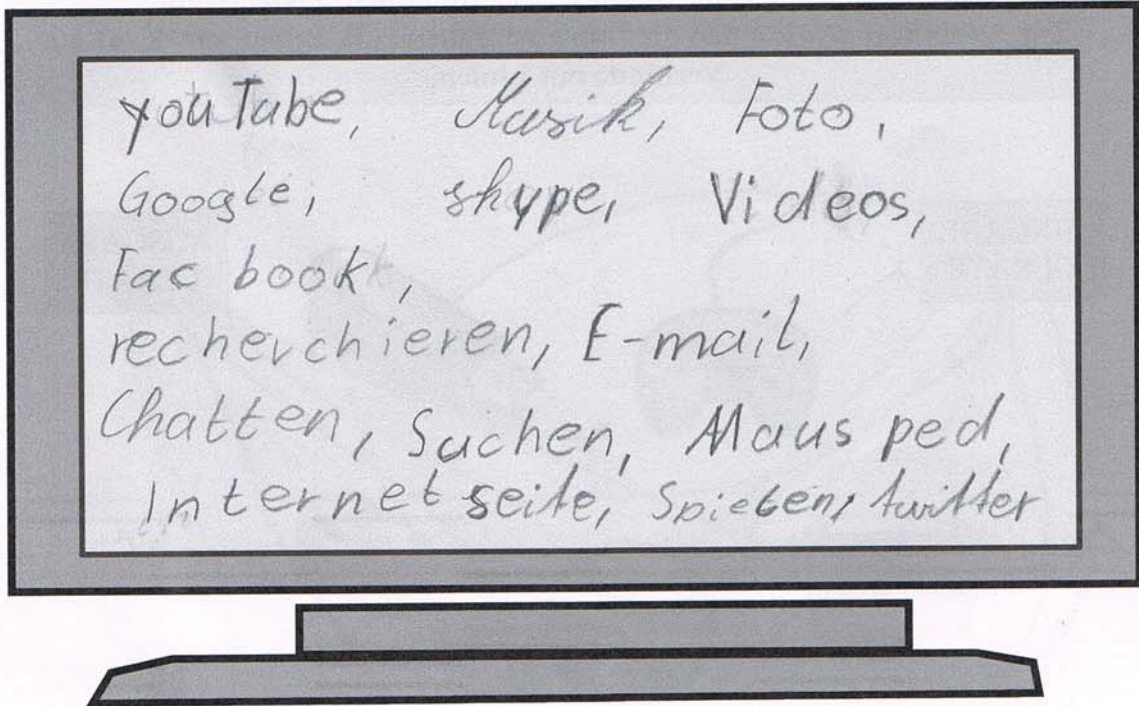 youTube, Musik, Foto,
Google, skype, Videos,
Fac book,
recherchieren, E-mail,
Chatten, Suchen, Maus ped,
Internetseite, Spielen, twitter